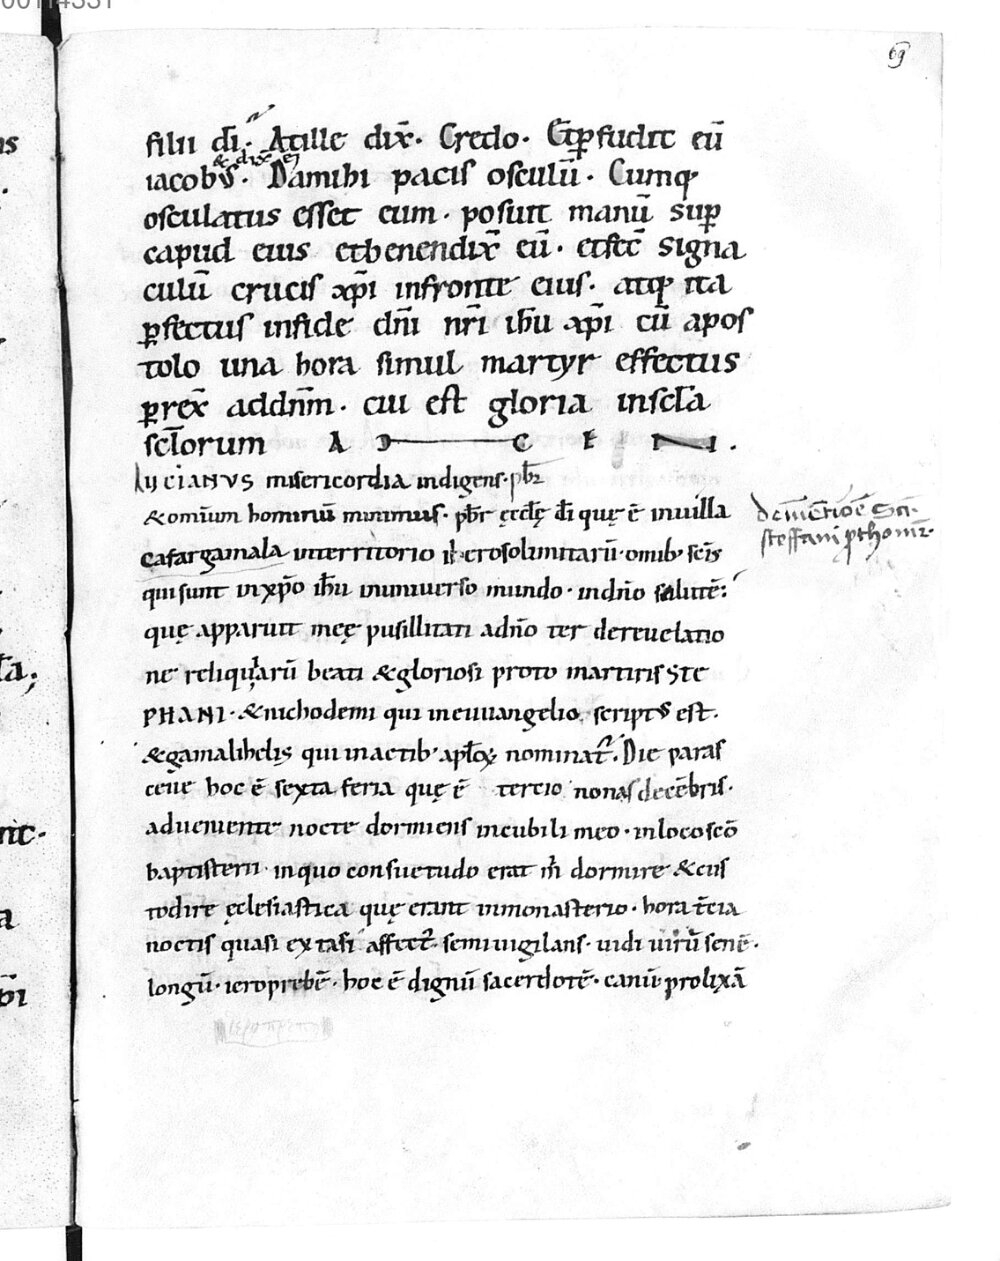 69
filii dı̄. At ille dix̄. Credo. Et ꝑfudit eū
& dix̄ ei
iacobus. Da mihi pacis osculū. Cumq;
osculatus esset eum. posuit manū sup̱
capud eius et benendix̄ eū. et fec̄ signa
culū crucis xp̄i in fronte eius. atq; ita
ꝑfectus in fide dn̄i nr̄i ih̄u xp̄i cū apos
tolo una hora simul martyr effectus
ꝑrex̄ ad dn̄m. cui est gloria in sc̄la
sc̄lorum A    C E N.
LUCIANUS misericordia indigens. pb̄r
& omīum hominū minimus. pb̄r ęcclę dī quę ē in uilla
cafargamala in territorio ierosolimitarū. omib; sc̄is
qui sunt in xp̄o ih̄u in uniuerso mundo. in dn̄o salutē:
quę apparuit meę pusillitati a dn̄o ter de reuelatio
ne reliquiarū beati & gloriosi proto martiris STE
PHANI. & nichodemi qui in euuangelio scriptus est.
& gamalihelis qui in actib; aplōꝝ nominat̄. Die paras
ceue hoc ē sexta feria quę ē tertio nonas decēbris.
adueniente nocte dormiens in cubili meo. in loco sc̄o
baptisterii. in quo consuetudo erat m̄ dormire & cus
todire ęclesiastica quę erant in monasterio. hora t̄cia
noctis quasi extasi affect. semiuigilans. uidi uirū senē.
longū. ieroprebē. hoc ē dignū sacerdotē. canū prolixā
de inuētiōe Sā.
steffani pthom̄r.